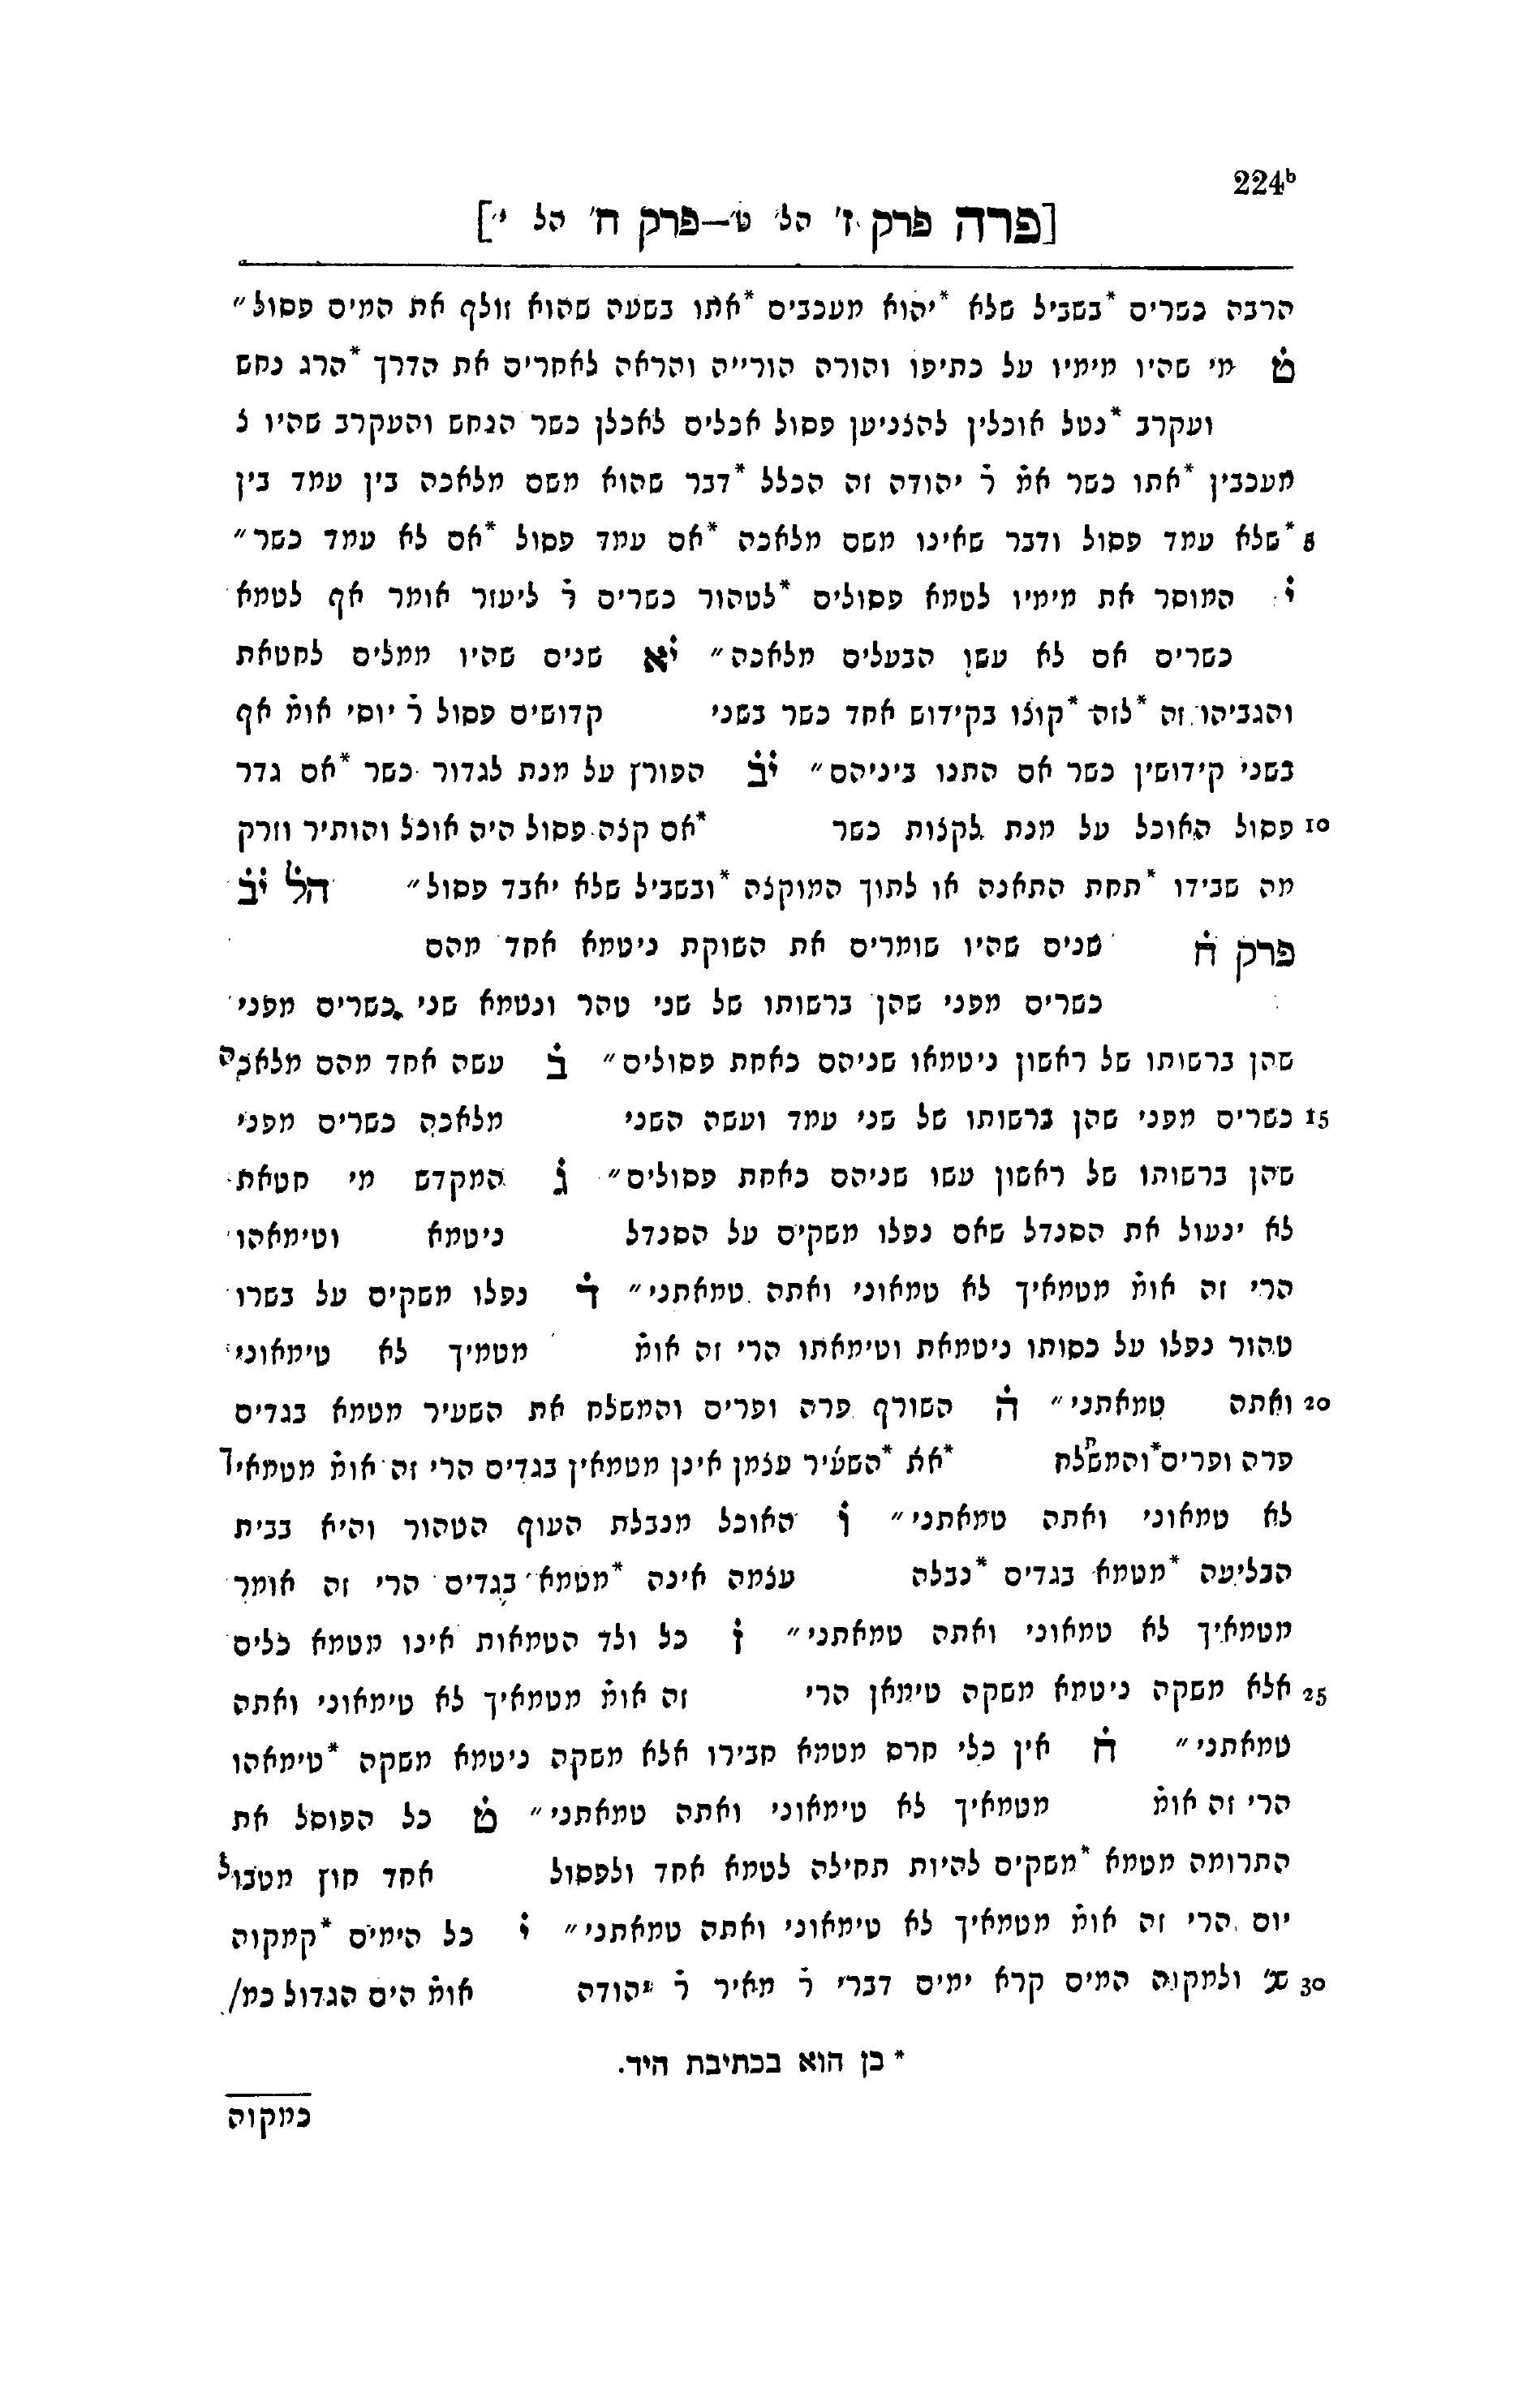 224b
[פרה פרק ז' הל' ט'—פרק ח' הל י']
הרבה כשרים *בשביל שלא *יהוא מעכבים *אתו בשעה שהוא זולף את המים פסול״
ט מי שהיו מימיו על כתיפו והורה הורייה והראה לאחרים את הדרך *הרג נחש
ועקרב *נטל אוכלין להצניען פסול אכלים לאכלן כשר הנחש והעקרב שהיו צ
מעכבין *אתו כשר אמ̇ ר̇ יהודה זה הכלל *דבר שהוא משם מלאכה בין עמד בין
5 *שלא עמד פסול ודבר שאינו משם מלאכה *אם עמד פסול *אם לא עמד כשר״
י המוסר את מימיו לטמא פסולים *לטהור כשרים ר̇ ליעזר אומר אף לטמא
כשרים אם לא עשו הבעלים מלאכה״ יא שנים שהיו ממלים לחטאת
והגביהו זה *לזה *קוצו בקידוש אחד כשר בשני קדושים פסול ר̇ יוסי אומ̇ אף
בשני קידושין כשר אם התנו ביניהם״ יב הפורץ על מנת לגדור כשר *אם גדר
10 פסול האוכל על מנת לקצות כשר *אם קצה פסול היה אוכל והותיר וזרק
מה שבידו *תחת התאנה או לתוך המוקצה *ובשביל שלא יאבד פסול״ הל יב
פרק ח שנים שהיו שומרים את השוקת ניטמא אחד מהם
כשרים מפני שהן ברשותו של שני טהר ונטמא שני כשרים מפני
שהן ברשותו של ראשון ניטמאו שניהם כאחת פסולים״ ב עשה אחד מהם מלאכה
15 כשרים מפני שהן ברשותו של שני עמד ועשה השני מלאכה כשרים מפני
שהן ברשותו של ראשון עשו שניהם כאחת פסולים״ ג המקדש מי חטאת
לא ינעול את הסנדל שאם נפלו משקים על הסנדל ניטמא וטימאהו
הרי זה אומ̇ מטמאיך לא טמאוני ואתה טמאתני״ ד נפלו משקים על בשרו
טהור נפלו על כסותו ניטמאת וטימאתו הרי זה אומ̇ מטמיך לא טימאוני
20 ואתה טמאתני״ ה השורף פרה ופרים והמשלח את השעיר מטמא בגדים
פרה ופרים *והמשלח *את *השעיר עצמן אינן מטמאין בגדים הרי זה אומ̇ מטמאיך
לא טמאוני ואתה טמאתני״ ו האוכל מנבלת העוף הטהור והיא בבית
הבליעה *מטמא בגדים *נבלה עצמה אינה *מטמא בגדים הרי זה אומר
מטמאיך לא טמאוני ואתה טמאתני״ ז כל ולד הטמאות אינו מטמא כלים
25 אלא משקה ניטמא משקה טימאן הרי זה אומ̇ מטמאיך לא טימאוני ואתה
טמאתני״ ח אין כלי חרס מטמא חבירו אלא משקה ניטמא משקה *טימאהו
הרי זה אומ̇ מטמאיך לא טימאוני ואתה טמאתני״ ט כל הפוסל את
התרומה מטמא *משקים להיות תחילה לטמא אחד ולפסול אחד חוץ מטבול
יום הרי זה אומ̇ מטמאיך לא טימאוני ואתה טמאתני״ י כל הימים *קמקוה
30 ולמקוה המים קרא ימים דברי ר̇ מאיר ר̇ יהודה אומ̇ הים הגדול כמ/
* כן הוא בכתיבת היד.
כמקוה